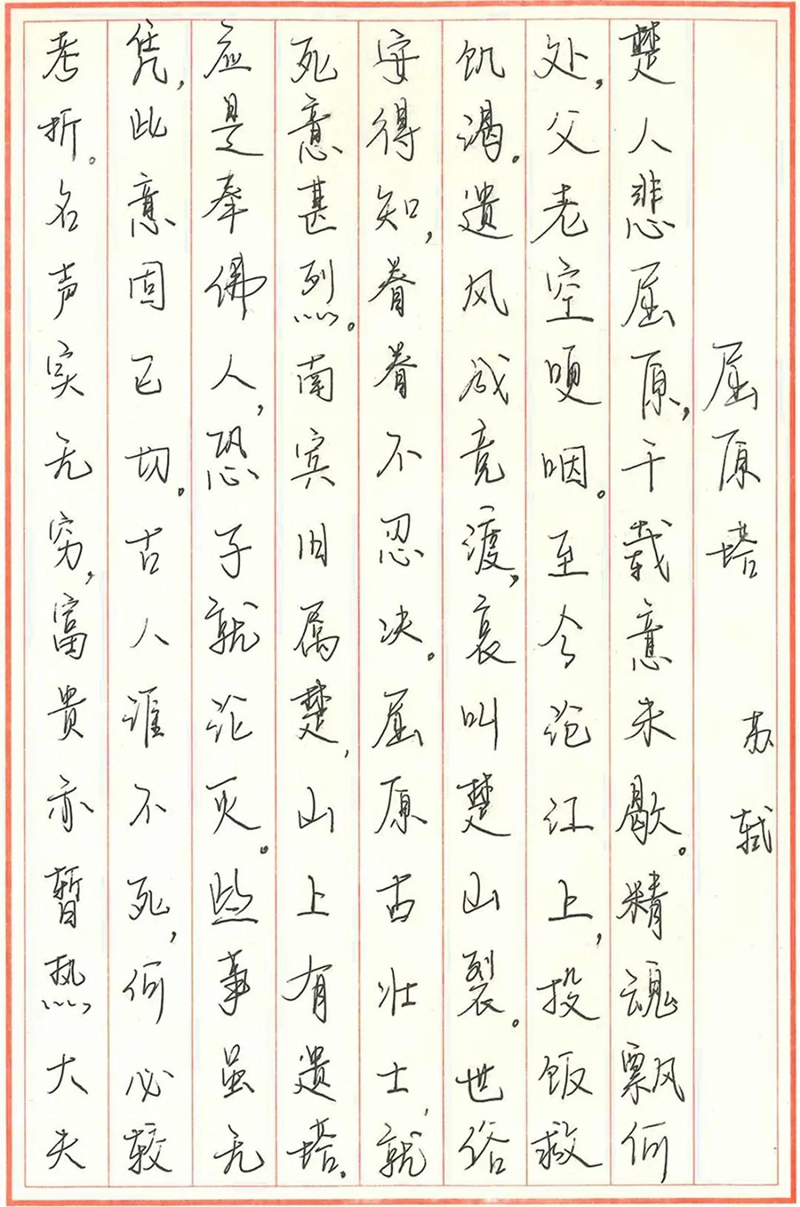 屈原塔
苏轼
楚人悲屈原，千载意未歇。精魂飘何
处，父老空哽咽。至今沧江上，投饭救
饥渴。遗风成竞渡，哀叫楚山裂。世俗
安得知，眷眷不忍决。屈原古壮士，就
死意甚烈。南宾旧属楚，山上有遗塔。
应是奉佛人，恐子就沦灭。此事虽无
凭，此意固已切。古人谁不死，何必较
考折。名声实无穷，富贵亦暂热大夫